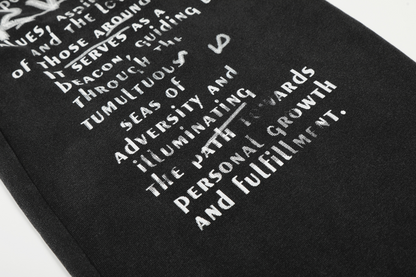 UES, ASPIR
AND THE LO
OF THOSE AROUND
IT SERVES AS A
BEACON, GUIDING
THROUGH THE
TUMULTUOUS
SEAS OF
ADVERSITY AND
ILLUMINATING
THE PATH TOWARDS
PERSONAL GROWTH
AND FULFILLMENT.